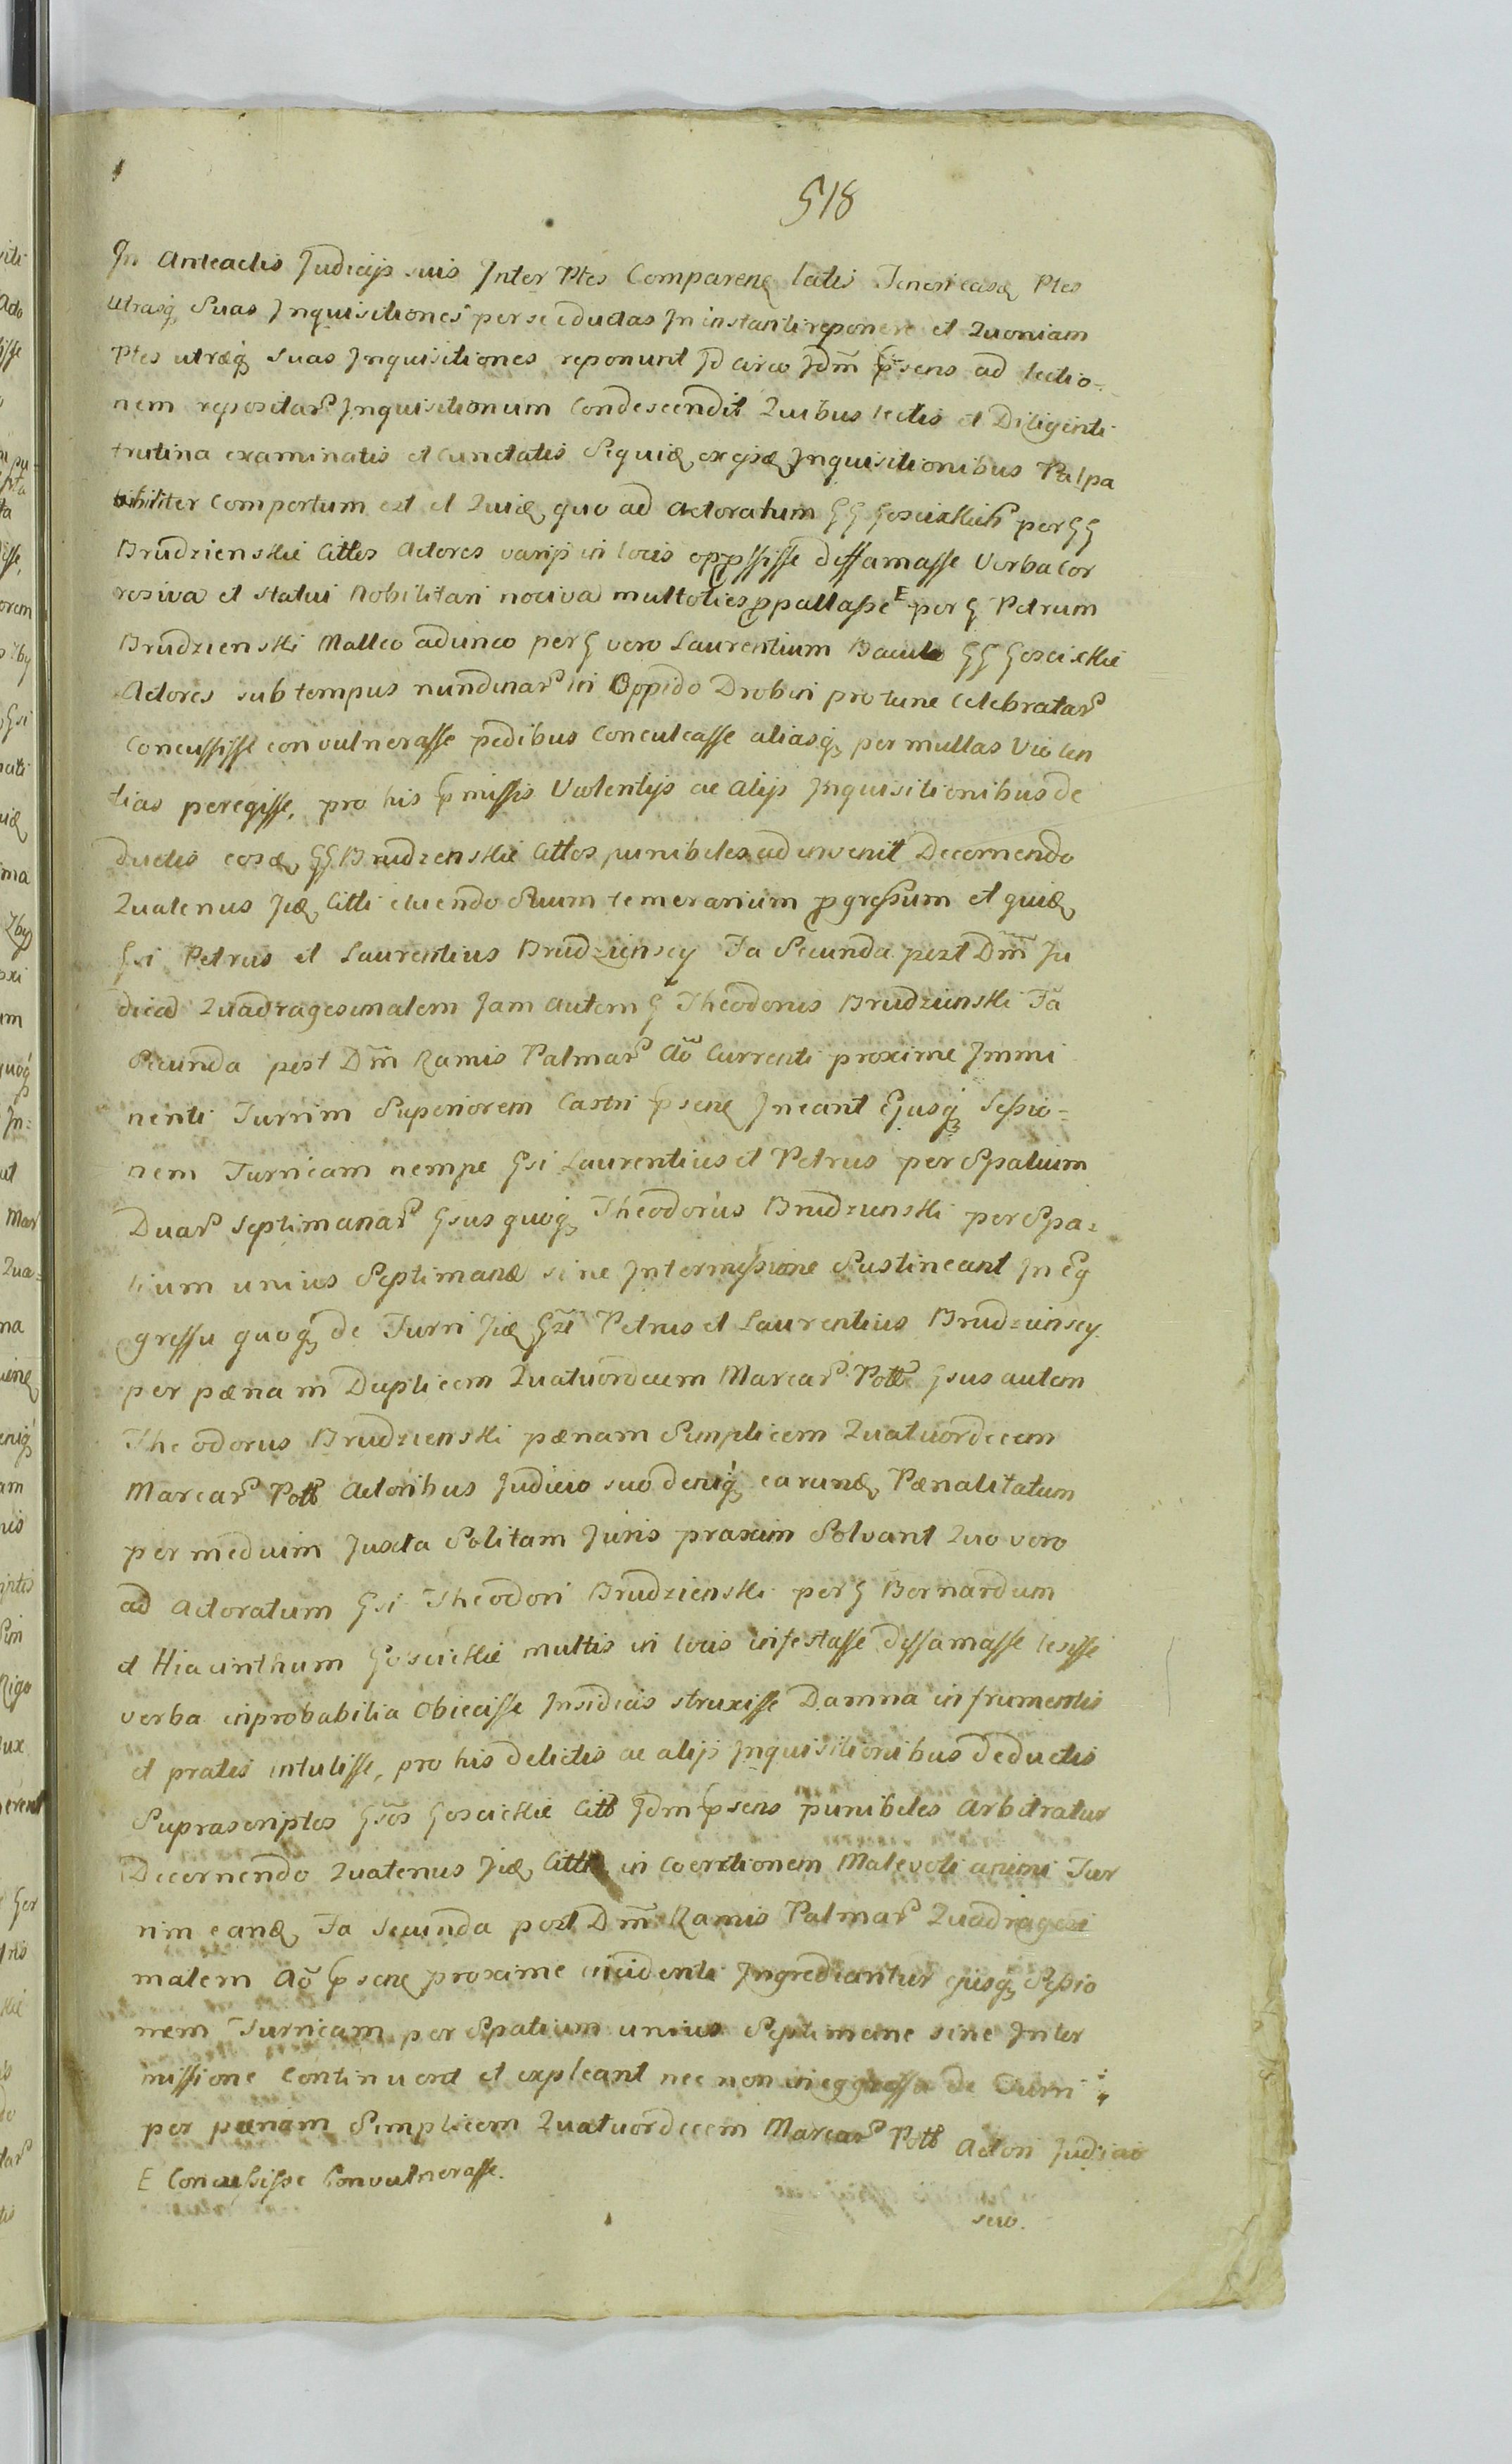 518
In Anteactis Judicijs suis Inter Ptes Comparenq latis Teneri easdq Ptes
Utrasq Suas Inquisitiones per se eductas In instanti reponere et Quoniam
Ptes utræq suas Inquisitiones reponunt Id circo Jdm psens ad lectio-
nem repositar Inquisitionum Condescendit Quibus lectis et Diligenti
trutina examinatis et cunctatis Siquidq ex ejsdq Inquisitionibus Palpa
biliter Compertum est et Quidq quo ad Actoratum GG Goscickich per GG
Brudzienskie Cittos Actores varijs in locis oppssisse diffamasse Verba Cor
rosiva et statui Nobilitari nociva multoties ppallasse E per G Petrum
Brudzienski Malleo adunco per G vero Laurentium Baculo GG Goscickie
Actores sub tempus nundinar in Oppido Drobin pro tunc Celebratar
Concussisse convulnerasse pedibus Conculcasse aliasq per multas Violen
tias peregisse, pro his pmissis Violentijs ac alijs Inquisitionibus de
ductis eosdq GG Brudzenskie Cittos punibiles adinvenit Decernendo
Quatenus Jidq Citti eluendo Suum temerarium pgressum et quidq
Gsi Petrus et Laurentius Brudzienscy Fa Secunda post Dnm Ju
dica Quadragesimalem Jam autem G Theodorus Brudzienski Fa
Secunda post Dnm Ramis Palmar Ao Currenti proxime Immi
nenti Turrim Superiorem Castri psenq Ineant Ejusq Sessio=
nem Turricam nempe Gsi Laurentius et Petrus per Spatium
Duar Septimanar Gsus quoq Theodorus Brudzienski per Spa=
tium unius Septimanæ sine Intermissione Sustineant In Eg
gressu quoq de Turri Jidq Gsi Petrus et Laurentius Brudzienscy
per pænam Duplicem Quatuordecim Marcar Pottl Gsus autem
Theodorus Brudzienski pænam Simplicem Quatuordecem
Marcar Pottl Actoribus Judicio suo deniq earundq Pænalitatum
per medium Juxta Solitam Juris praxim Solvant Quo vero
ad Actoratum Gsi Theodori Brudzienski per G Bernardum
et Hiacinthum Goscickie multis in locis infestasse diffamasse lesisse
verba inprobabilia Obiecisse Insidias struxisse Damna in frumentis
et pratis intulisse, pro his delictis ac alijs Inquisitionibus deductis
Suprascriptos Gsos Goscickie Citt Jdm psens punibiles Arbitratur
Decernendo Quatenus Jidq Citti in Coerctionem Malevoli animi Tur
rim eandq Fa Secunda post Dnm Ramis Palmar Quadragesi
malem Ao psenq proxime incidenti Ingrediantur ejusq Sessio
nem Turricam per Spatium unius Septimane sine Inter
missione Continuent et expleant nec non in eggressu de Turri
per pænam Simplicem Quatuordecem Marcar Pottl Actori Judicio
E Concussisse Convulnerasse.
suo.